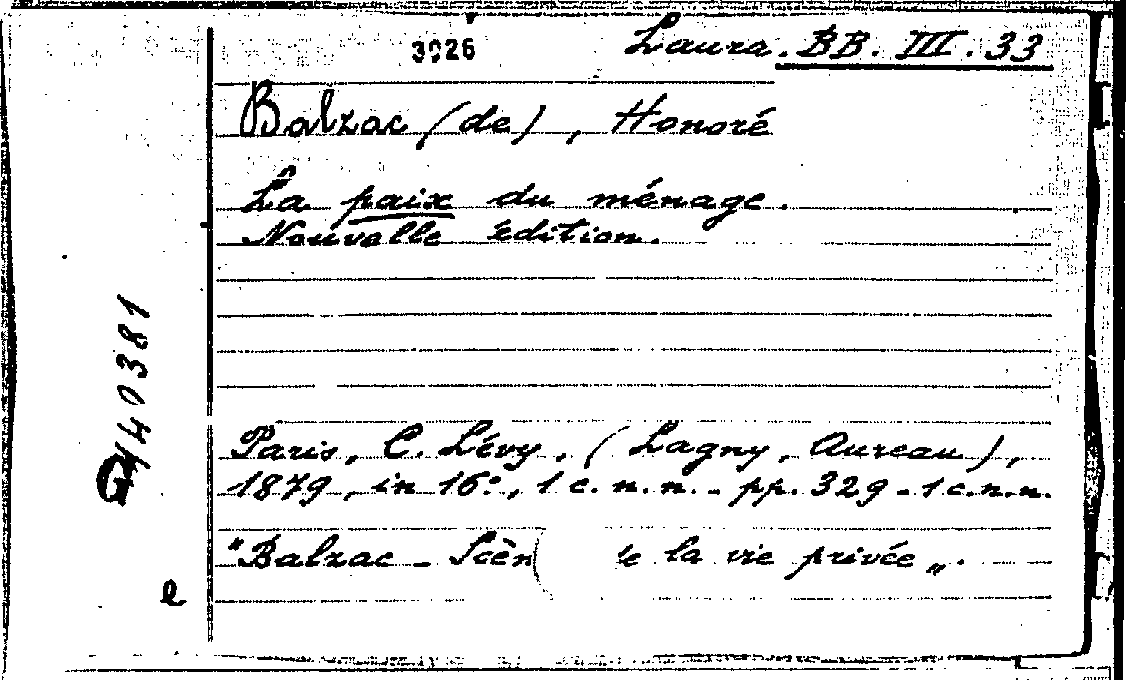 3026 Laura. BB. III. 33
Balzac (de), Honoré
La paix du ménage.
Nouvelle édition.
Paris, C. Lévy, (Lagny, Aureau),
1879, in 16°, 1 c. n. n. - pp. 329 - 1 c.n.n.
"Balzac - Scèn de la vie privée„.
G440381
e